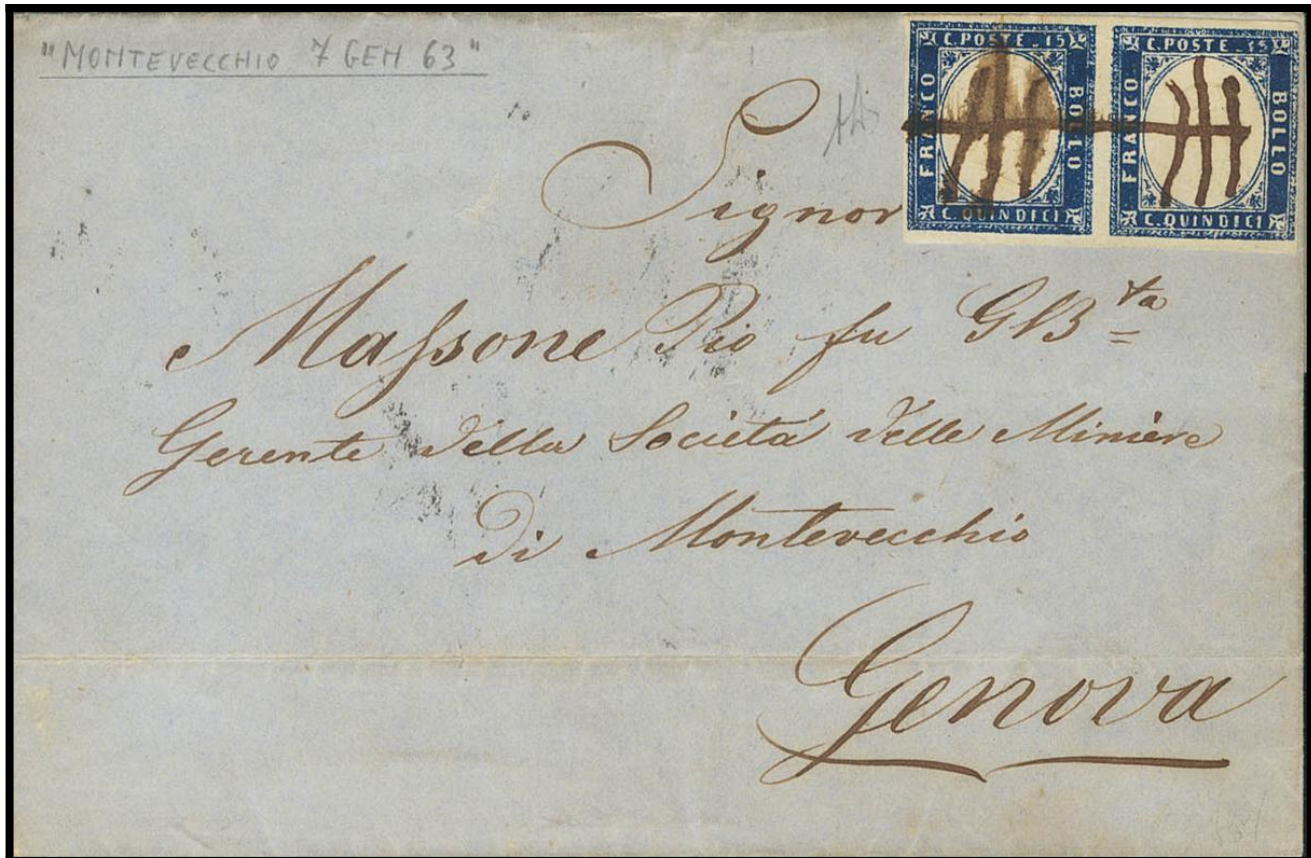 "MONTEVECCHIO 7 GEN 63"
C. POSTE. 15
FRANCO
BOLLO
C. QUINDICI
C. POSTE. 15
FRANCO
BOLLO
C. QUINDICI
Signor
Maſsone Pio fu GB.ta
Gerente della Società delle Miniere
di Montevecchio
Genova